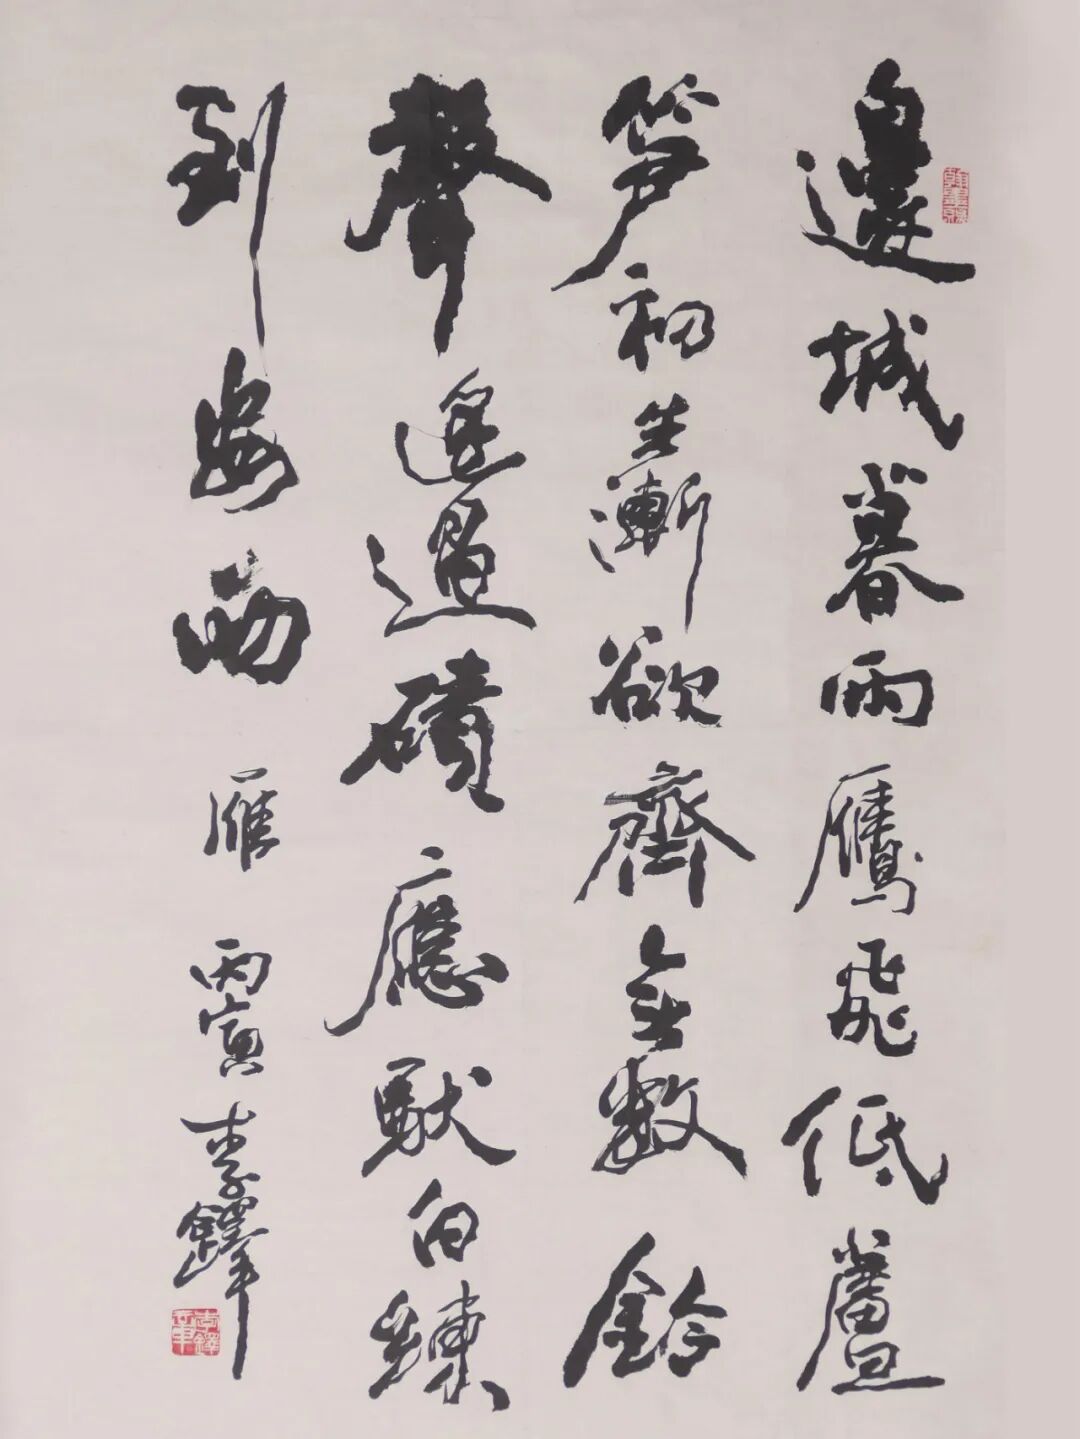 邊城暮雨鷹飛低蘆
笋初生漸欲齊無數鈴
聲遥過磧應馱白練
到安西 雁 丙寅 李鐸